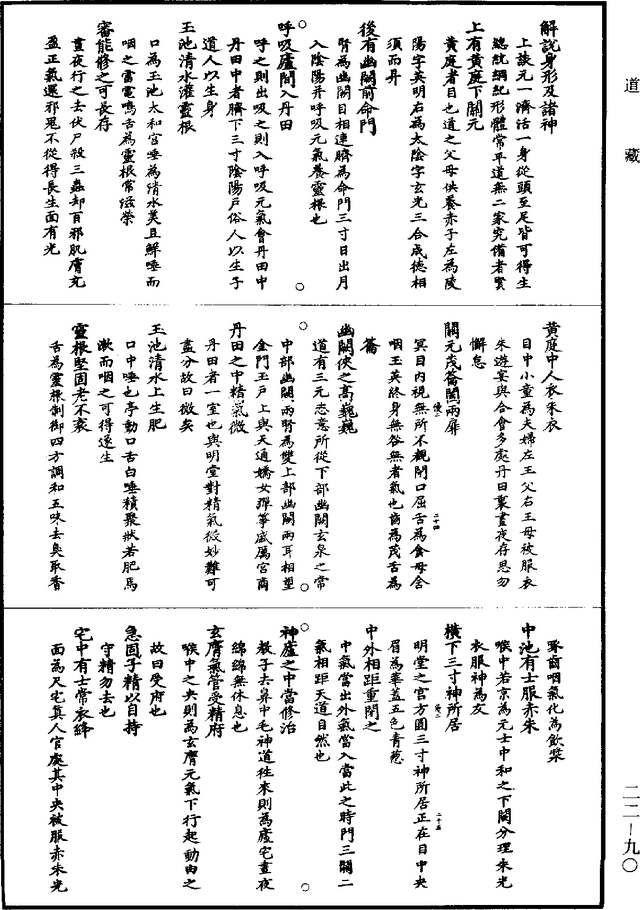 道藏
解說身形及諸神
上談元一濟活一身從頭至足皆可得生
總統綱紀形體常平道無二家究備者賢
上有黃庭下關元
黃庭者目也道之父母供養赤子左為陵
陽字英明右為太陰字玄光三合成德相
須而升
後有幽闕前命門
腎為幽闕目相連臍為命門三寸日出月
入陰陽并呼吸元氣養靈根也
呼吸廬間入丹田
呼之則出吸之則入呼吸元氣會丹田中
丹田中者臍下三寸陰陽戶俗人以生子
道人以生身
玉池清水灌靈根
口為玉池太和宮唾為清水美且鮮唾而
咽之雷電鳴舌為靈根常滋榮
審能修之可長存
晝夜行之去伏尸殺三蟲却百邪肌膚充
盈正氣還邪鬼不從得長生面有光
黃庭中人衣朱衣
目中小童為夫婦左王父右王母被服衣
朱遊宴與合會多處丹田裏晝夜存思勿
懈怠
關元茂籥闔兩扉
冥目內視無所不覩閉口屈舌為食母含
咽玉英終身無咎無者氣也齒為茂舌為
籥
幽闕俠之高巍巍
道有三元恣意所從下部幽闕玄泉之常
中部幽闕兩腎為雙上部幽闕兩耳相望
金門玉戶上與天通嬌女彈箏盛厲宮商
丹田之中精氣微
丹田者一室也與明堂對精氣微妙難可
盡分故曰微矣
玉池清水上生肥
口中唾也亭動口舌白唾積聚狀若肥馬
漱而咽之可得遂生
靈根堅固老不衰
舌為靈根制御四方調和五味去臭取香
二十四
啄齒咽氣化為飲漿
中池有士服赤朱
喉中若京為元士中和之下闕分理朱光
衣服神為友
橫下三寸神所居
明堂之宮方圓三寸神所居正在目中央
眉為華蓋五色青葱
中外相距重閉之
中氣當出外氣當入當此之時門三關二
氣相距天道自然也
神廬之中當修治
教子去鼻中毛神道往來則為廬宅晝夜
綿綿無休息也
玄膺氣管受精府
喉中之央則為玄膺元氣下行起動由之
故曰受府也
急固子精以自持
守精勿去也
宅中有士常衣絳
面為尺宅真人官處其中央被服赤朱光
二十五
二二—九〇